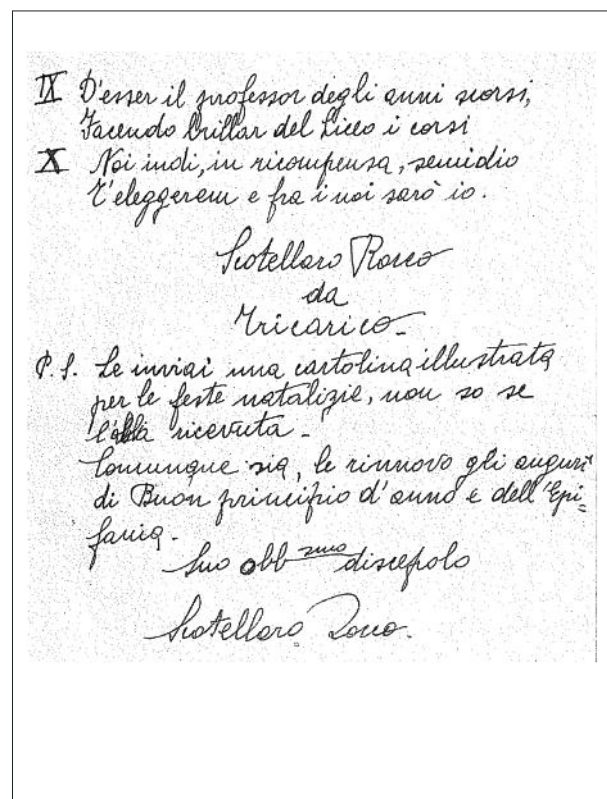 IX D'esser il professor degli anni scorsi,
Facendo brillar del Liceo i corsi
X Noi indi, in ricompensa, semidio
T'eleggerem e fra i noi sarò io.
Scotellaro Rocco
da
Tricarico_
P.S. Le inviai una cartolina illustrata
per le feste natalizie, non so se
l'abbia ricevuta _
Comunque sia, le rinnovo gli auguri
di Buon principio d'anno e dell'Epi=
fania.
Suo obb smo discepolo
Scotellaro Rocco.